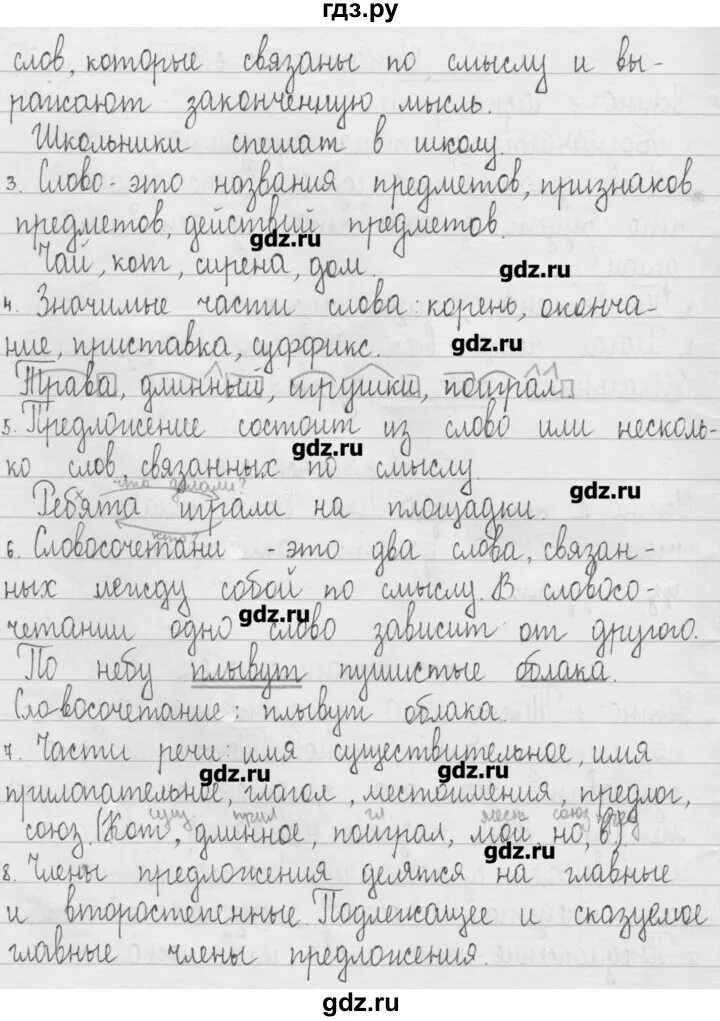 гдз.ру
слов, которые связаны по смыслу и вы-
ражают законченную мысль.
Школьники спешат в школу.
3. Слово - это названия предметов, признаков
предметов, действий предметов.
gdz.ru
Чай, кот, сирена, дом.
gdz.ru
4. Значимые части слова: корень, оконча-
ние, приставка, суффикс.
gdz.ru
Трава, длинный, игрушки, поиграл
5. Предложение состоит из слово или несколь-
gdz.ru
ко слов, связанных по смыслу.
что делали?
gdz.ru
Ребята играли на площадки.
кто?
6. Словосочетани - это два слова, связан-
ных между собой по смыслу. В словосо
gdz.ru
четании одно слово зависит от другого.
По небу плывут пушистые облака.
Словосочетание: плывут облака.
7. Части речи: имя существительное, имя
gdz.ru
gdz.ru
прилопательное, глагол, местоимения, предлог,
сущ. прил гл. мест союз пред
союз. (Кот, длинное, поиграл, мой, но, в)
gdz.ru
8. Члены предложения делятся на главные
и второстепенные. Подлежащее и сказуемое
главные члены предложения.
gdz.ru